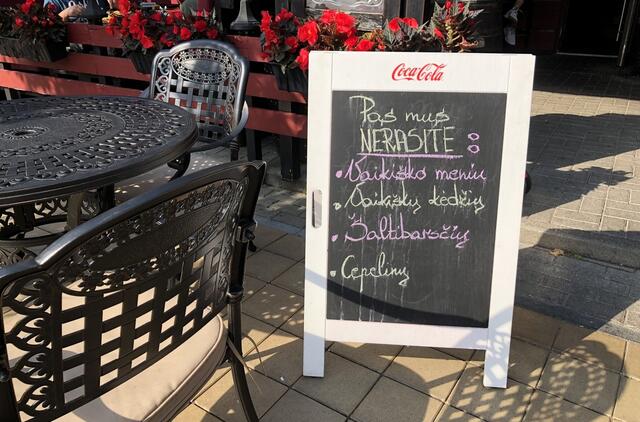 Coca-Cola
Pas mus
NERASITE:
• Vaikiško meniu
• Vaikiškų kėdžių
• Šaltibarsčių
• Cepelinų